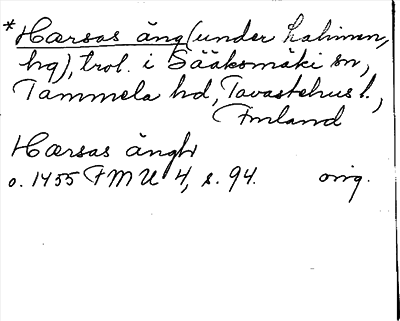 *Hærsas äng (under Lahinen,
hg), trol. i Sääksmäki sn,
Tammela hd, Tavastehus l.,
Finland
Hærsas ängh
o. 1455 FMU 4, s. 94. orig.